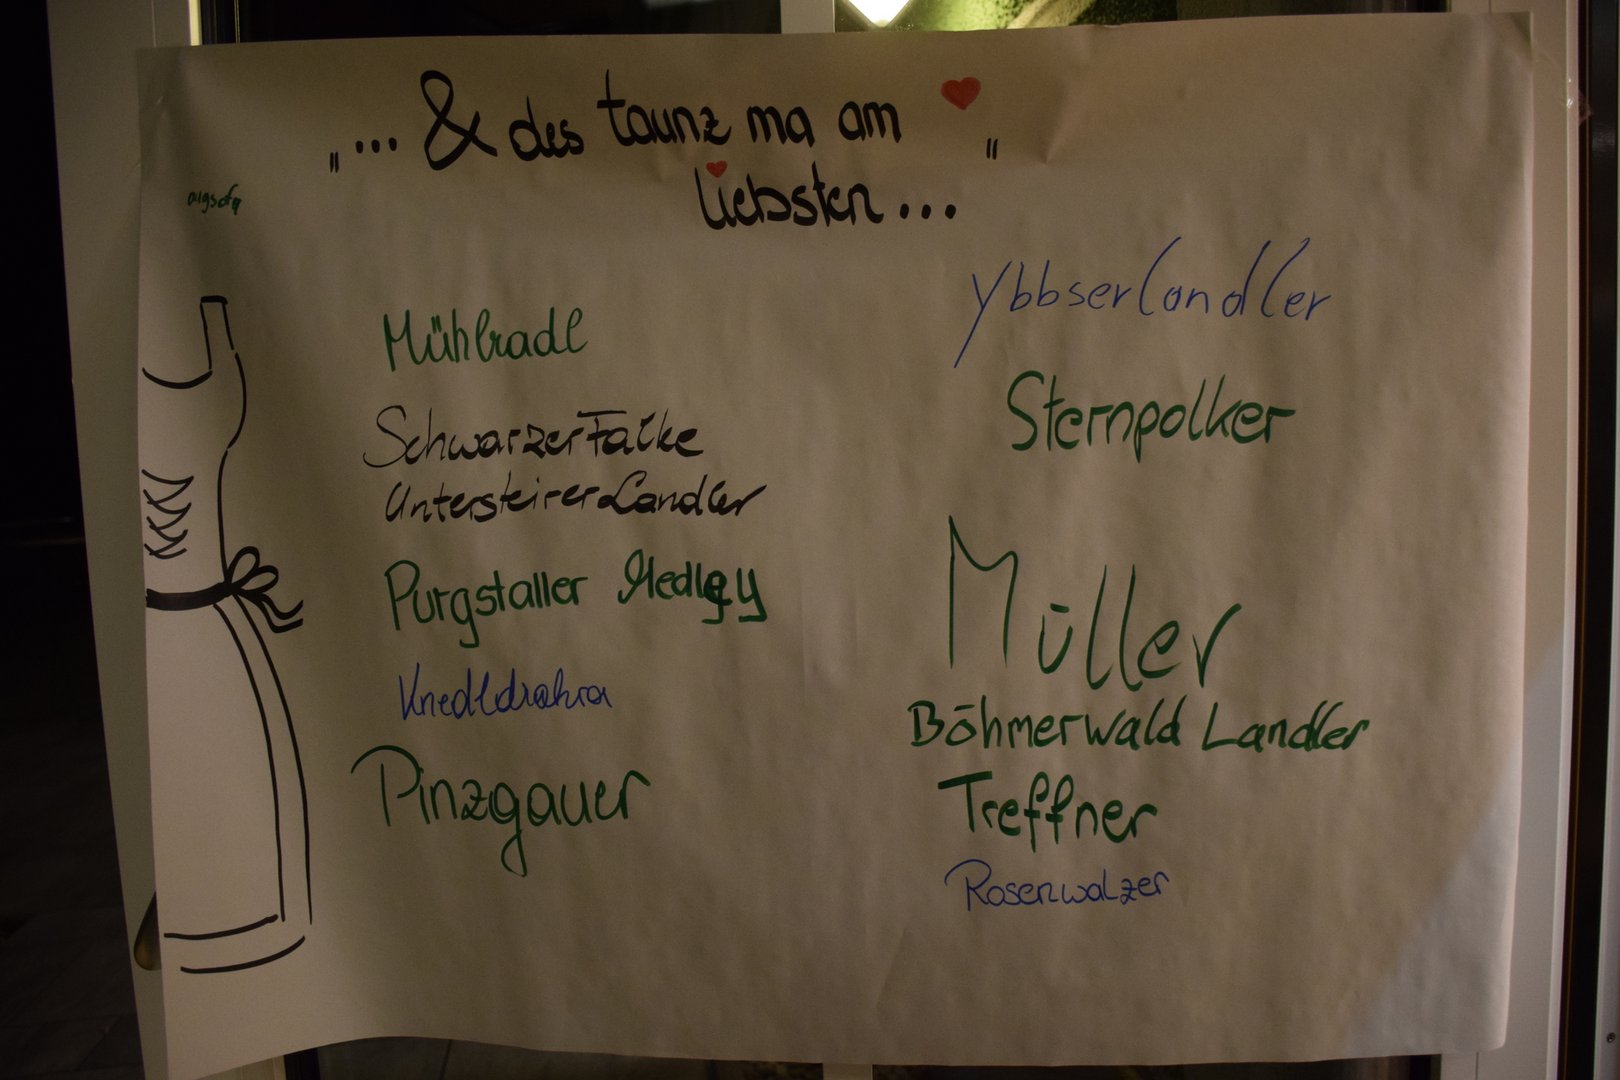 „... & des taunz ma am
liebsten... "
Mühlradl
Schwarzer Falke
Untersteirer Landler
Purgstaller Medley
Knedldrahra
Pinzgauer
Ybbser Landler
Sternpolker
Müller
Böhmerwald Landler
Treffner
Rosenwalzer